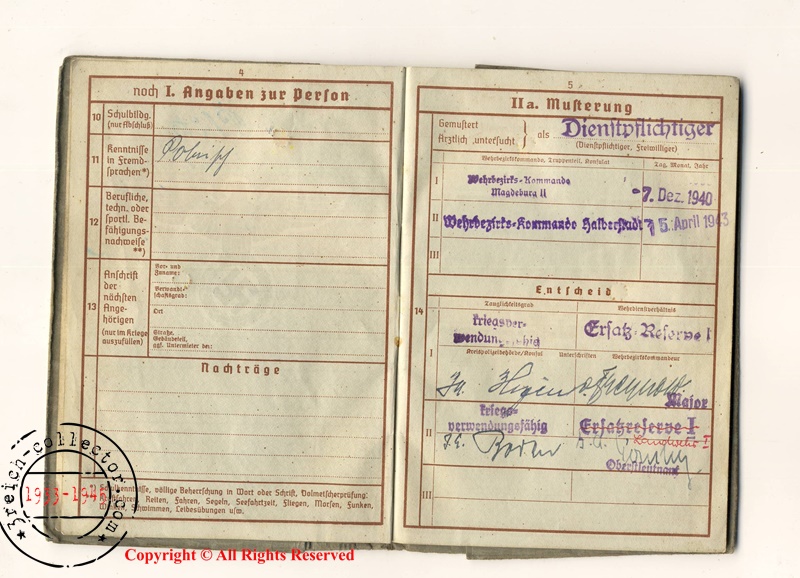 4
noch I. Angaben zur Person
10
Schulbildg.
(nur Abschluß)
11
Kenntnisse
in Fremd-
sprachen*)
Polnisch
12
Berufliche,
techn. oder
sportl. Be-
fähigungs-
nachweise
**)
13
Anschrift
der
nächsten
Ange-
hörigen
(nur im Kriege
auszufüllen)
Vor- und
Zuname:
Verwandt-
schaftsgrad:
Ort
Straße,
Gebäudeteil,
ggf. Untermieter bei:
Nachträge
völlige Beherrschung in Wort oder Schrift, Dolmetscherprüfung:
Reiten, Fahren, Segeln, Seefahrtzeit, Fliegen, Morsen, Funken,
Schwimmen, Leibesübungen usw.
5
IIa. Musterung
Gemustert
Ärztlich untersucht
als Dienstpflichtiger
(Dienstpflichtiger, Freiwilliger)
Wehrbezirkskommando, Truppenteil, Konsulat
Tag, Monat, Jahr
I
Wehrbezirks-Kommando
Magdeburg II
-7. Dez. 1940
II
Wehrbezirks-Kommando Halberstadt
15. April 1943
III
Entscheid
14
Tauglichkeitsgrad
Wehrdienstverhältnis
kriegsver-
wendungsfähig
Ersatz-Reserve I
I
Kreispolizeibehörde/Konsul
Unterschriften
Wehrbezirkskommandeur
Major
II
kriegs-
verwendungsfähig
Ersatzreserve I
Landwehr I
Oberstleutnant
III
3reich-collector.com
1933-1945
Copyright © All Rights Reserved